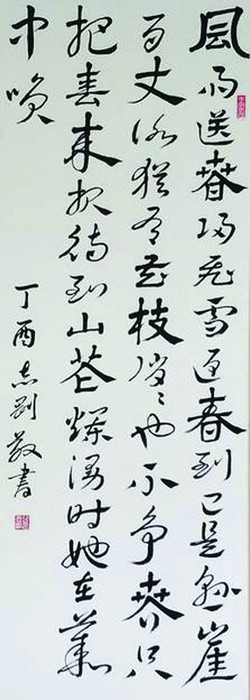 風雨送春归飛雪迎春到已是悬崖
百丈冰犹有花枝俏〻也不争春只
把春来报待到山花烂漫时她在叢
中咲
丁酉志刚敬書